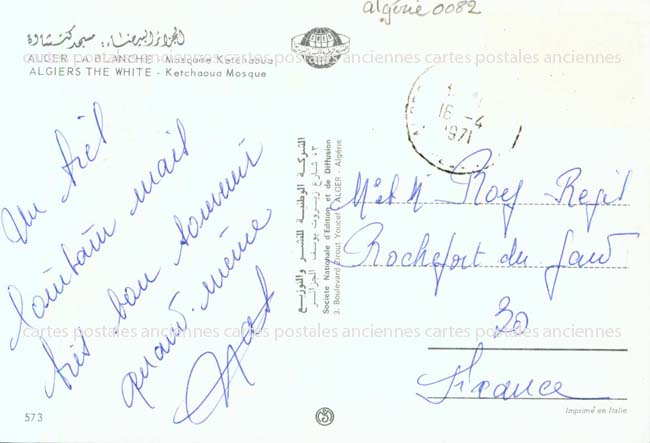 algérie 0082
الجزائر البيضاء.. مسجد كتشاوة
ALGER LA BLANCHE - Mosquée Ketchaoua
cartes postales anciennes cartes postales anciennes cartes postales anciennes
ALGIERS THE WHITE - Ketchaoua Mosque
16 -4
1971
Un très
lointain mais
très bon souvenir
quand même
الشركة الوطنية للنشر والتوزيع
٣، شارع زيروت يوسف الجزائر
Société Nationale d'Édition et de Diffusion
3, Boulevard Zirout Youcef - ALGER - Algérie
M et Me Roey Regis
Rochefort du Gard
30
cartes postales anciennes cartes postales anciennes cartes postales anciennes
France
573
Imprimé en Italie